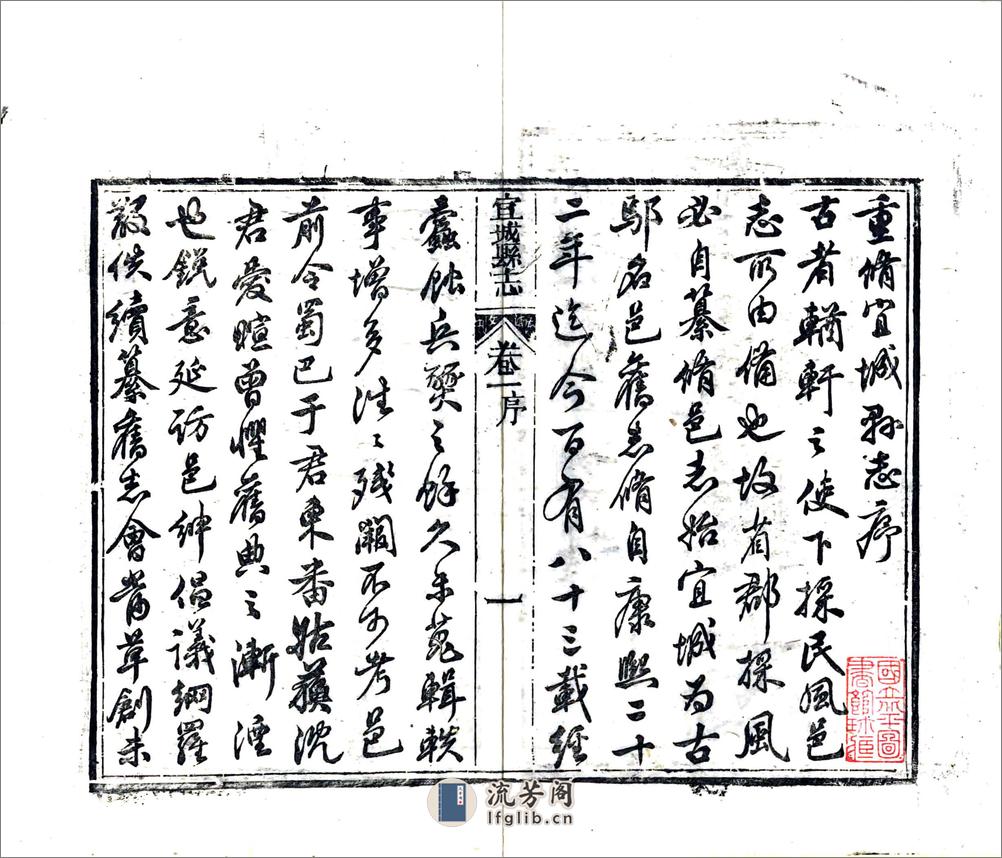 重脩宜城縣志序
古者輶軒之使下採民風邑
志所由備也故省郡採風
必自纂脩邑志始宜城為古
鄢名邑舊志脩自康熙二十
二年迄今百有八十三載經
宜城縣志 卷一序 一
蠹蝕兵燹之餘久未蒐輯軼
事增多往〻殘闕不可考邑
前令蜀巴于君東番姑蘓沈
君愛暄曾懼舊典之漸湮
也銳意延訪邑紳倡議網羅
散佚續纂舊志會茸草創未
流芳阁
lfglib.cn